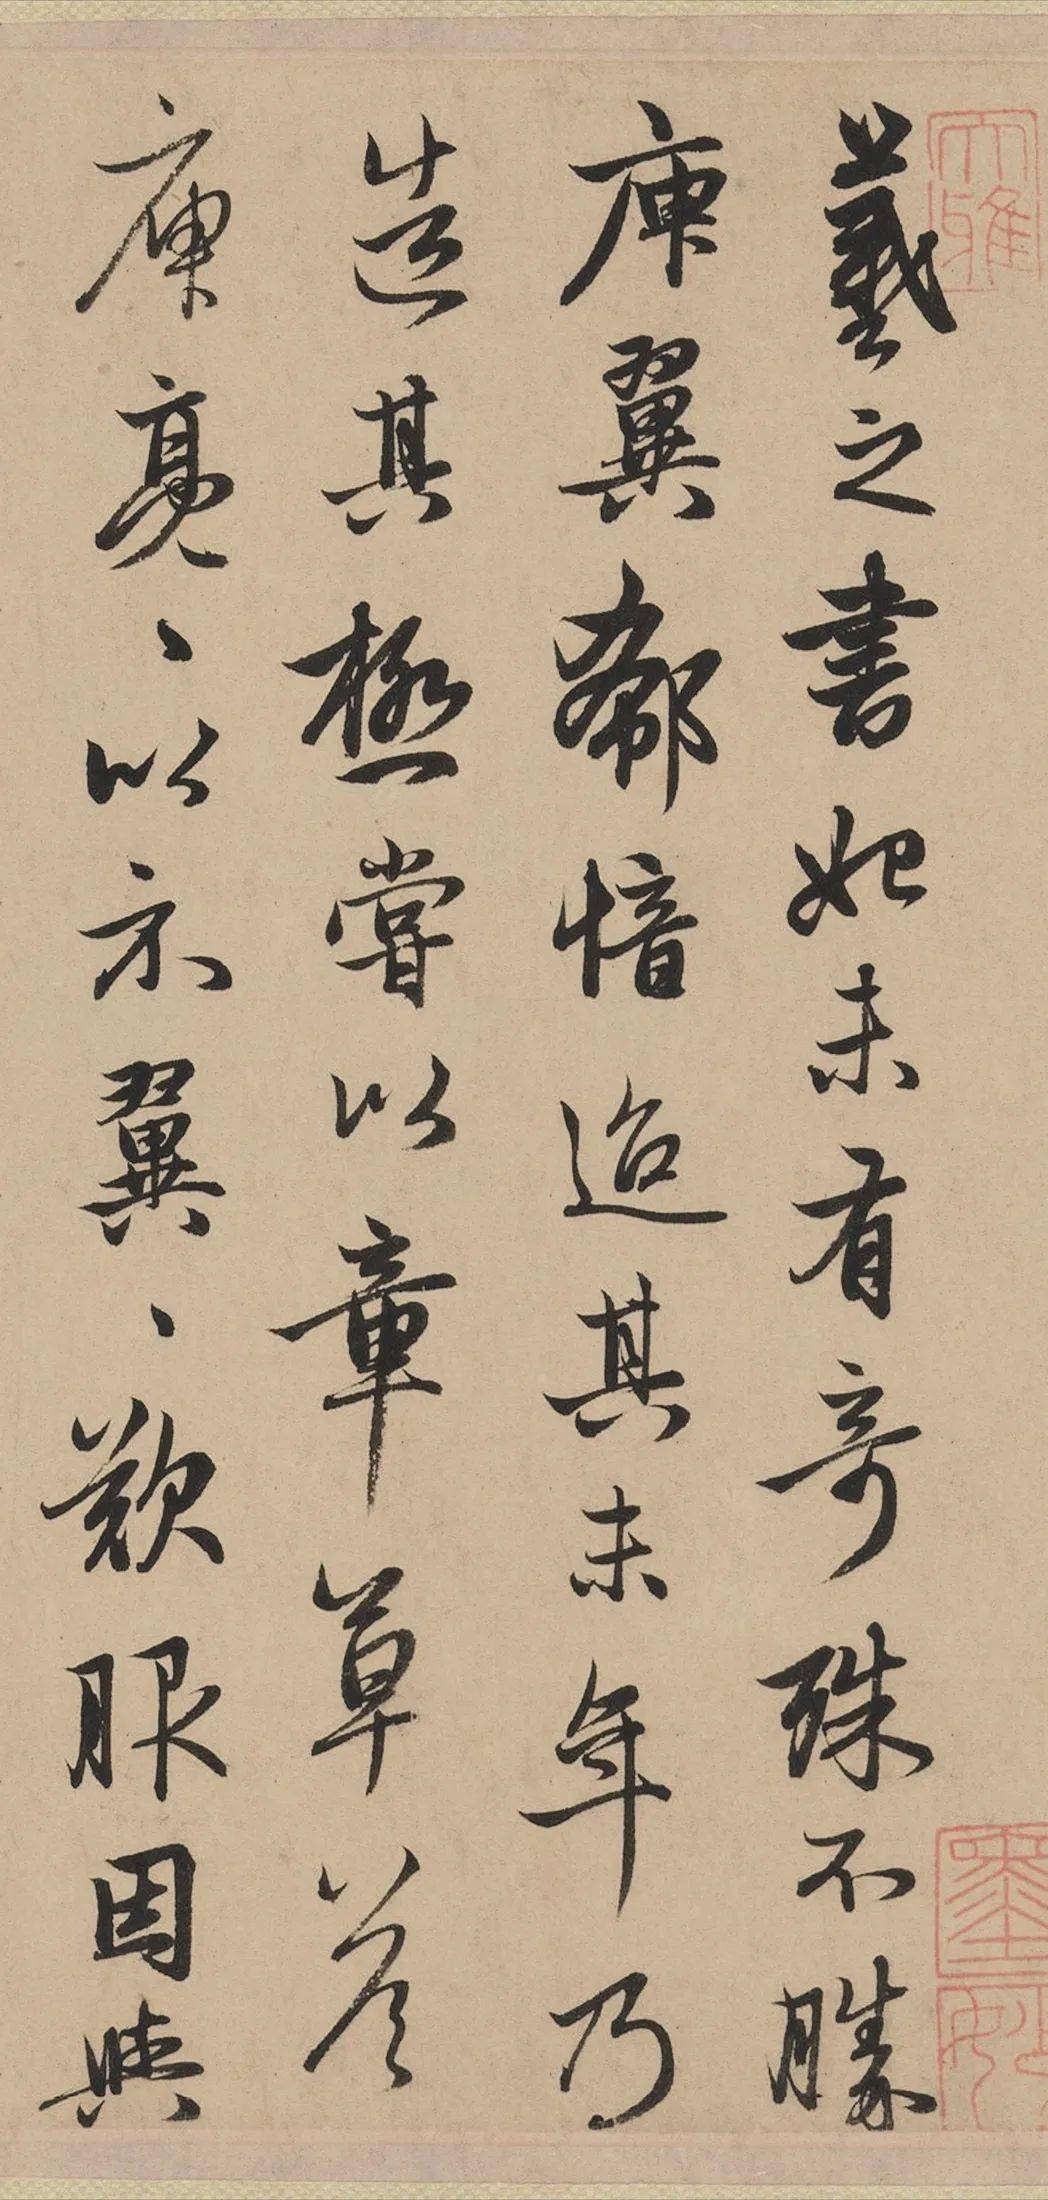 羲之書始未有奇殊不勝
庾翼郗愔迨其末年乃
造其極嘗以章草答
庾亮亮以示翼翼歎服因與
大雅